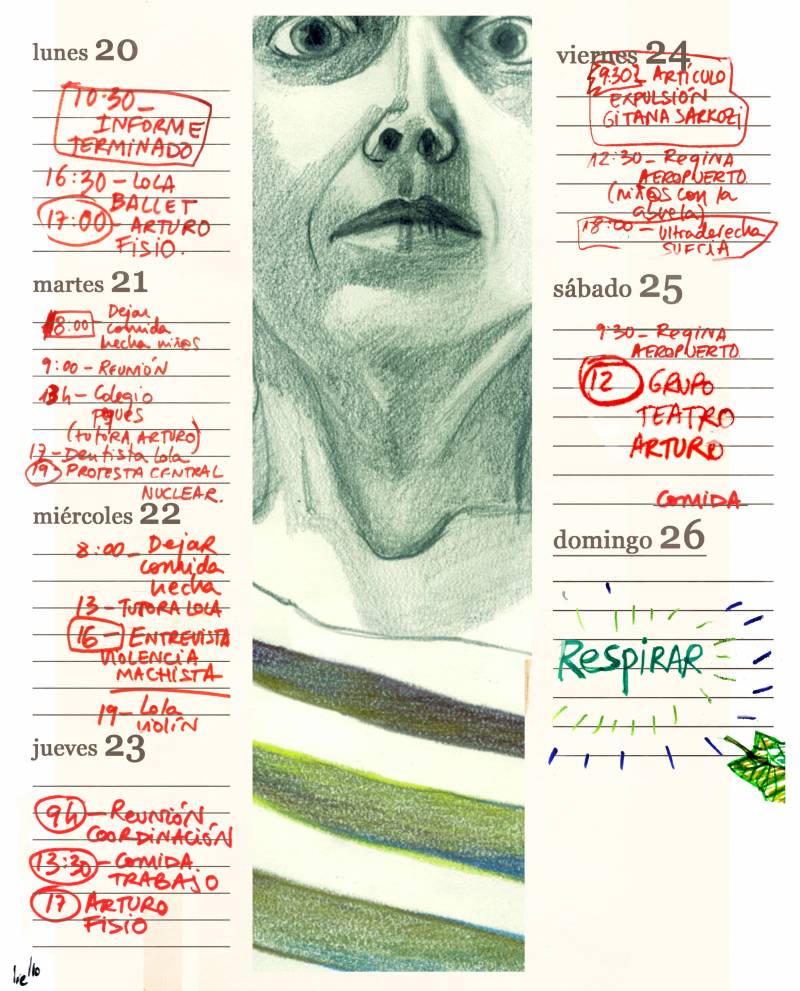 lunes 20
10:30 -
INFORME
TERMINADO
16:30 - LOLA
BALLET
17:00 - ARTURO
FISIO.
martes 21
8:00 Dejar
comida
hecha niñ@s
9:00 - REUNIÓN
13h - Colegio
peques
(tutora ARTURO)
17 - Dentista Lola
19 PROTESTA CENTRAL
NUCLEAR.
miércoles 22
8:00 - Dejar
comida
hecha
13 - TUTORA LOLA
16 - ENTREVISTA
VIOLENCIA
MACHISTA
19 - Lola
violín
jueves 23
9h - REUNIÓN
COORDINACIÓN
13:30 - COMIDA
TRABAJO
17 ARTURO
FISIO
viernes 24
9:30 ARTÍCULO
EXPULSIÓN
GITANA SARKOZI
12:30 - Regina
AEROPUERTO
(niñ@s con la
abuela)
18:00 - Ultraderecha
SUECIA
sábado 25
9:30 - Regina
AEROPUERTO
12 GRUPO
TEATRO
ARTURO
COMIDA
domingo 26
RespiRAR